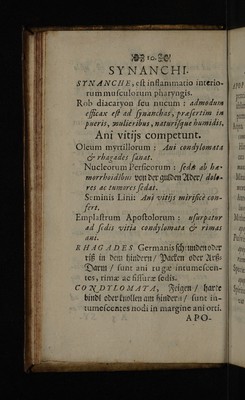 10.
SYNANCHI.
SYNANCHE, est inflammatio interio-
rum musculorum pharyngis.
Rob diacaryon seu nucum : admodum
efficax est ad synanchas, præsertim in
pueris, mulieribus, naturisque humidis.
Ani vitijs competunt.
Oleum myrtillorum : Ani condylomata
& rhagades sanat.
Nucleorum Persicorum : sedæ ab hæ-
morrhoidibus von der gulden Ader/ dolo-
res ac tumores sedat.
Seminis Lini: Ani vitijs mirificè con-
fert.
Emplastrum Apostolorum : usurpatur
ad sedis vitia condylomata & rimas
ani.
RHAGADES. Germanis schrunden oder
riß in dem hindern/ Backen oder Arß-
Darm / sunt ani rugæ intumescen-
tes, rimæ ac fissuræ sedis.
CONDYLOMATA, Feigen / harte
bindl oder knollen am hindern / sunt in-
tumescentes nodi in margine ani orti.
APO-